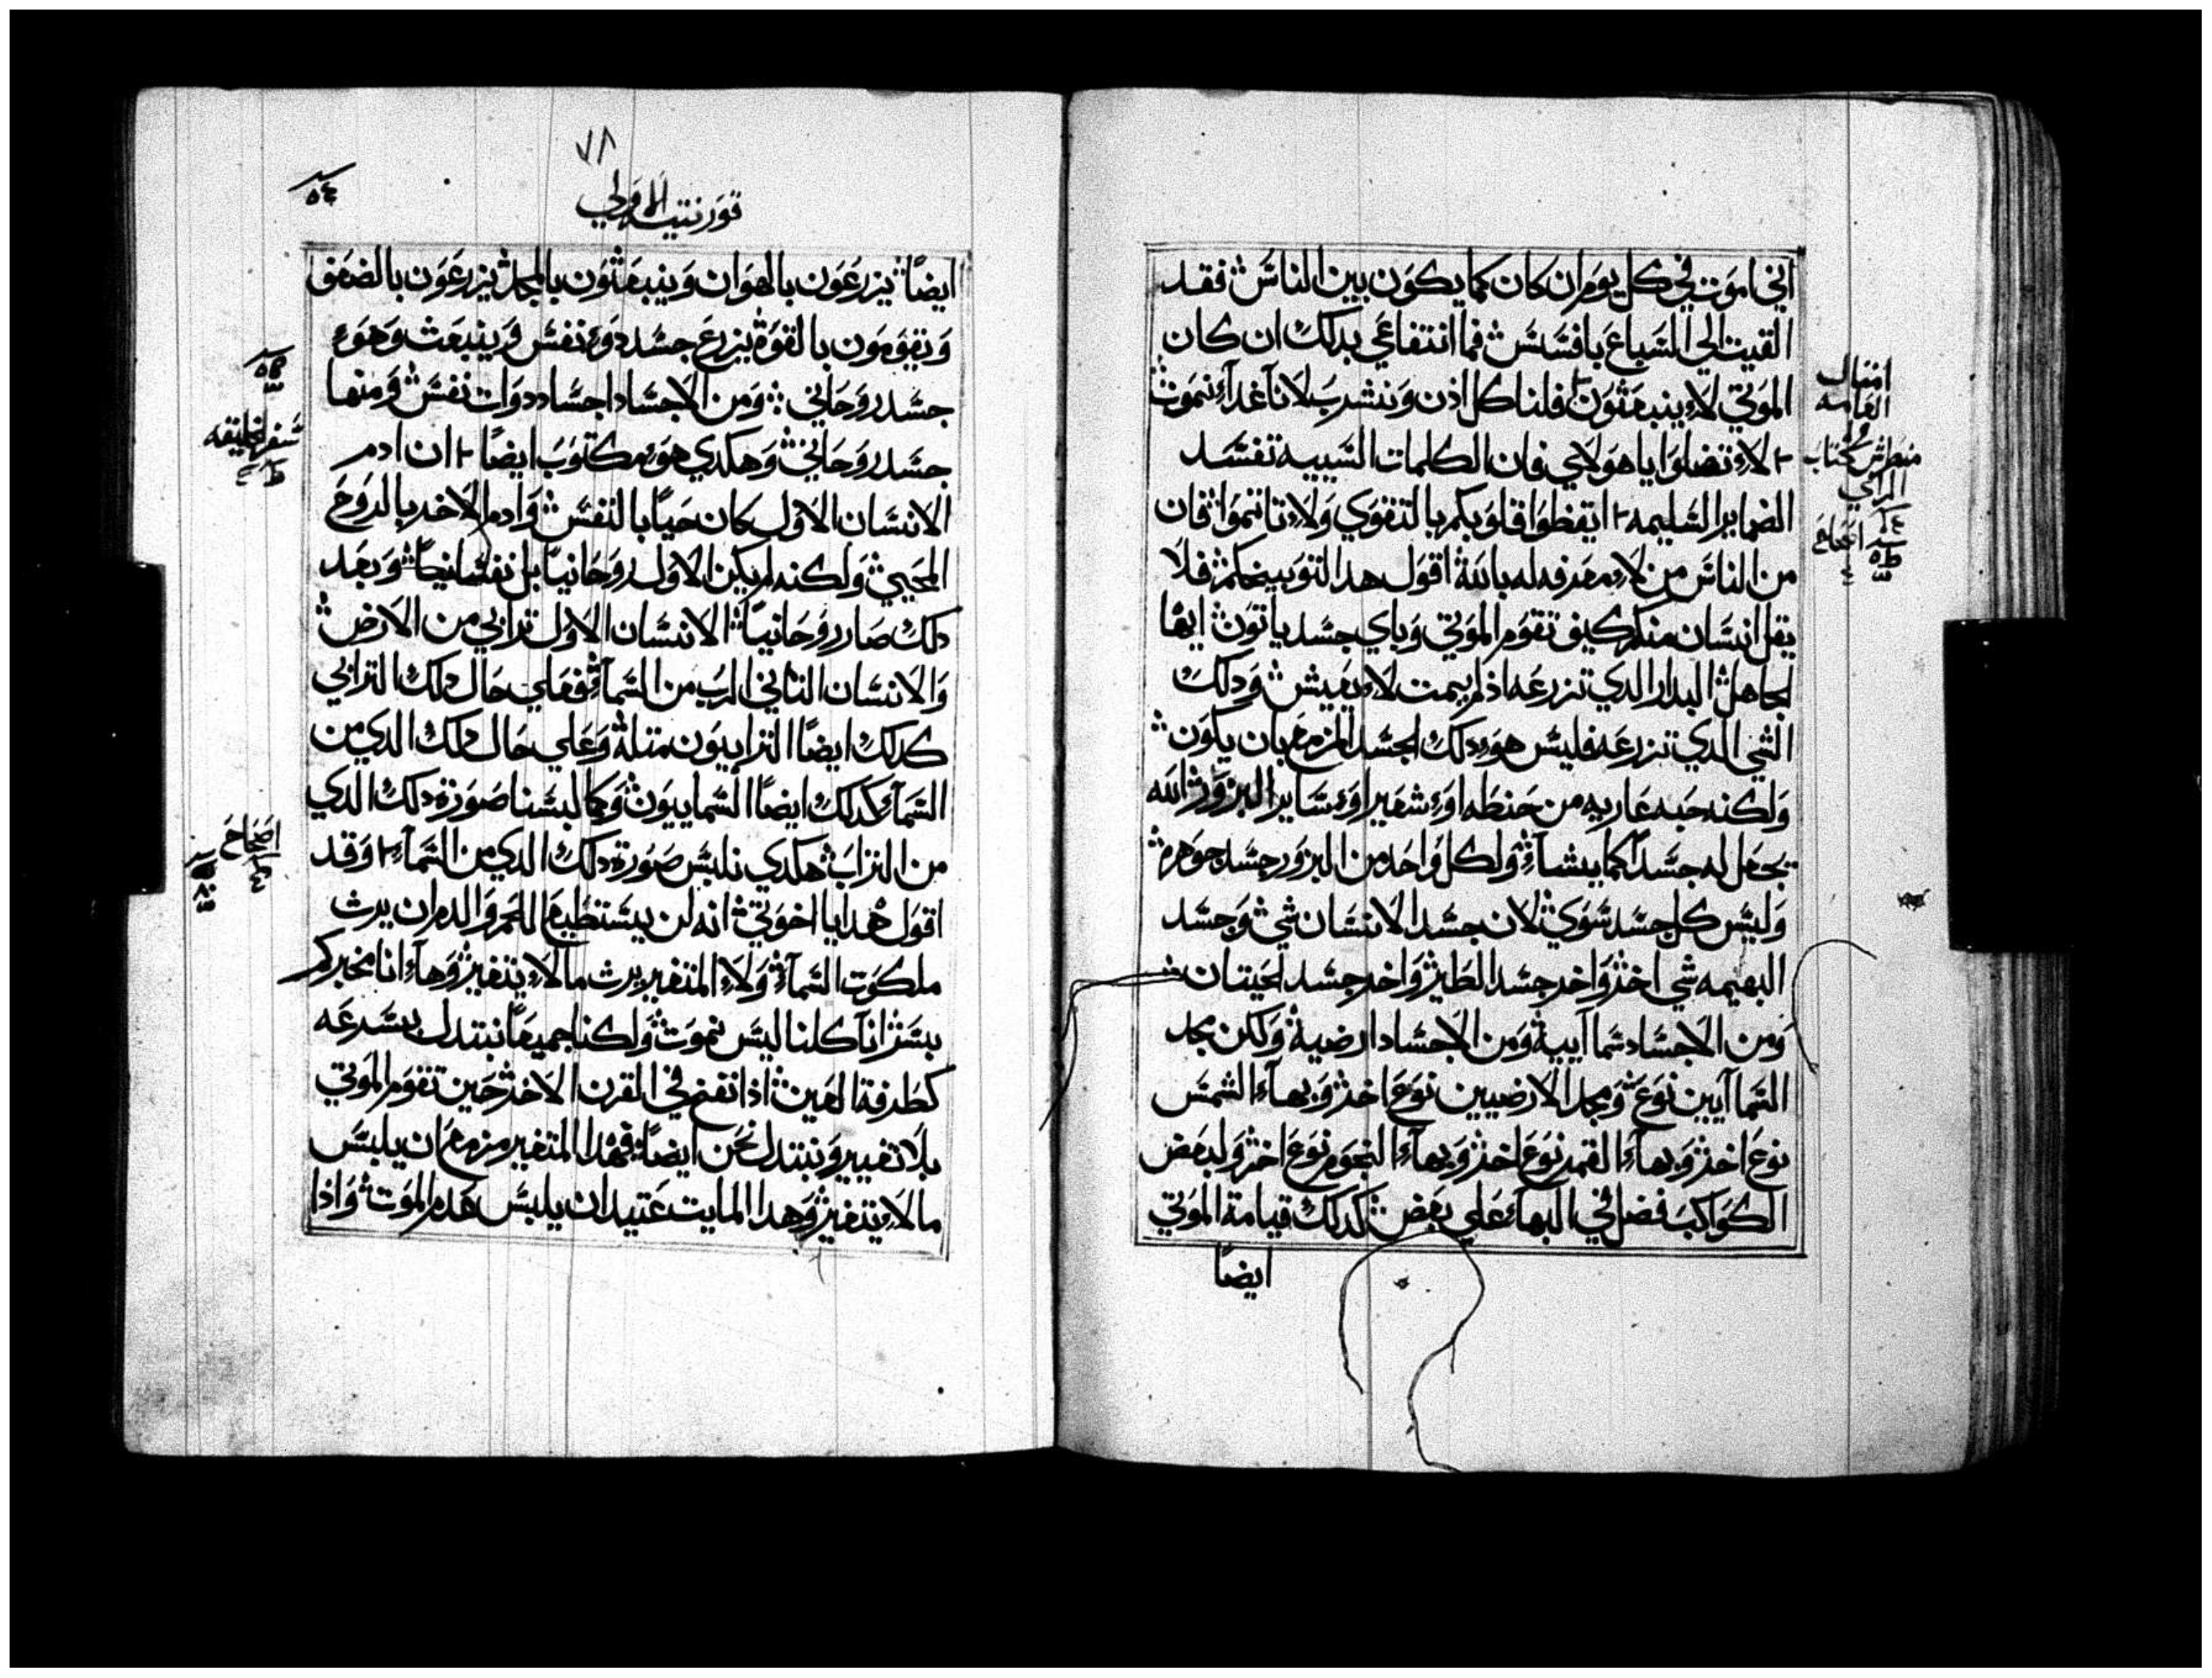 اني اموت في كل يوم ان كان كما يكون بين الناس فقد
القيت الي السباع بافسس فما انتفاعي بدلك ان كان
الموتي لا ينبعثون فلناكل اذن ونشرب لانا غداً نموت
لا تضلوا ياهولاي فان الكلمات السييه تفسد
الضماير السليمه ايقظوا قلوبكم بالتقوي ولا تاتموا فان
من الناس من لا معرفه له بالله اقول هدا لتوبيخكم فلا
يقل انسان منكم كيف تقوم الموتي وباي جسد ياتون ايها
الجاهل البدار الدي تزرعه اذ لم يمت لا يعيش ودلك
الشي الدي تزرعه فليس هو دلك الجسد المزمع بان يكون
ولكنه حبه عاريه من حنطه او شعير او ساير البزور الله
يجعل له جسداً كما يشا ولكل واحد من البزور جسد جوهره
وليس كل جسد سوي لان جسد الانسان شي وجسد
البهيمه شي اخر واخر جسد الطير واخر جسد الحيتان
ومن الاجساد سماايية ومن الاجساد ارضية ولكن مجد
السماايين نوع ومجد الارضيين نوع اخر وبهاء الشمس
نوع اخر وبهاء القمر نوع اخر وبهاء النجوم نوع اخر ولبعض
الكواكب فضل في البهاء علي بعض كدلك قيامة الموتي
ايضاً
امتال
العامه
الراي
٧٨
قورنتيه الاولي
٥٤
ايضاً يزرعون بالهوان وينبعثون بالمجد يزرعون بالضعف
ويقومون بالقوة يزرع جسد دو نفس وينبعث وهو
جسد روحاني ومن الاجساد اجساد دوات نفس ومنها
جسد روحاني وهكدي هو مكتوب ايضاً ان ادم
الانسان الاول كان حياً بالنفس وادم الاخر بالروح
المحيي ولكنه لم يكن الاول روحانياً بل نفسانياً وبعد
دلك صار روحانياً الانسان الاول ترابي من الارض
والانسان التاني الرب من السماء فعلي حال دلك الترابي
كدلك ايضاً الترابيون متله وعلي حال دلك الدي من
السماء كدلك ايضاً السماييون وكما لبسنا صورة دلك الدي
من التراب هكدي نلبس صورة دلك الدي من السماء وقد
اقول هدا يا اخوتي انه لن يستطيع اللحم والدم ان يرث
ملكوت السماء ولا المتغير يرث ما لا يتغير وها انا مخبركم
بسر انا كلنا ليس نموت ولكنا جميعاً نبتدل بسرعه
كطرفة العين اذا نفخ في القرن الاخر حين تقوم الموتي
بلا تغيير ونبتدل نحن ايضاً فهدا المتغير مزمع ان يلبس
ما لا يتغير وهدا المايت عتيد ان يلبس عدم الموت واذا
سفر الخليقه
اصحاح